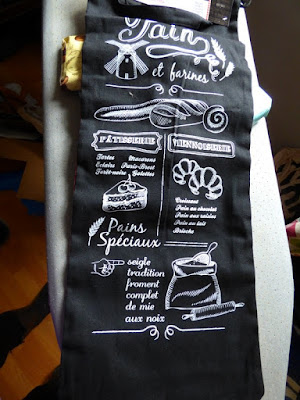 Pain
et farines
PÂTISSERIE
Tartes Macarons
Eclairs Paris-Brest
Forêt-noire Galettes
VIENNOISERIE
Croissant
Pain au chocolat
Pain aux raisins
Pain au lait
Brioche
Pains
Spéciaux
seigle
tradition
froment
complet
de mie
aux noix